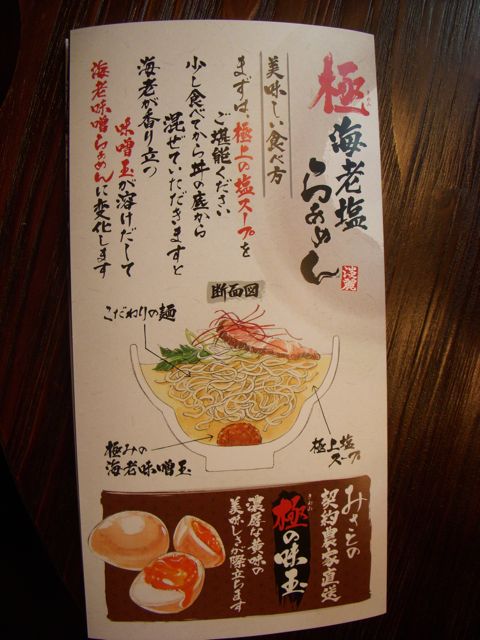 極
きわめ
海老塩
らぁめん
淡麗
美味しい食べ方
まずは、極上の塩スープを
ご堪能ください
少し食べてから丼の底から
混ぜていただきますと
海老が香り立つ
味噌玉が溶けだして
海老味噌らぁめんに変化します
断面図
こだわりの麺
極みの
海老味噌玉
極上塩
スープ
みさとの
契約農家直送
きわめ
極の味玉
濃厚な黄味の
美味しさが際立ちます